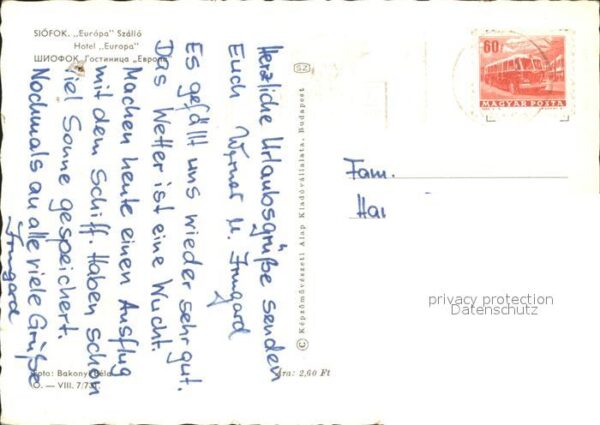 SIÓFOK. „Európa" Szálló
Hotel „Europa"
ШИОФОК. Гостиница „Европа
Herzliche Urlaubsgrüße senden
Euch Werner u. Irmgard
Es gefällt uns wieder sehr gut.
Das Wetter ist eine Wucht.
Machen heute einen Ausflug
mit dem Schiff. Haben schon
viel Sonne gespeichert.
Nochmals an alle viele Grüße
Irmgard
Foto: Bakonyi Béla
O. — VIII. 7/731
SZ
© Képzőművészeti Alap Kiadóvállalata, Budapest
Ára: 2,60 Ft
60f
MAGYAR POSTA
Fam.
Hai
privacy protection
Datenschutz